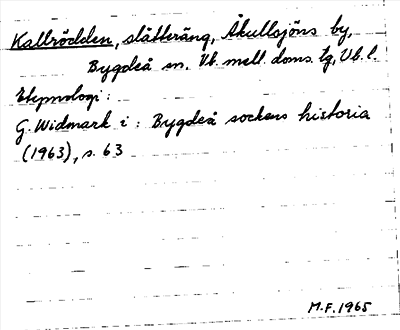 Kallrödden, slåtteräng, Åkullsjöns by,
Bygdeå sn. Vb. mell. doms. tg, Vb. l.
Etymologi:
G. Widmark i: Bygdeå sockens historia
(1963), s. 63
M.F. 1965